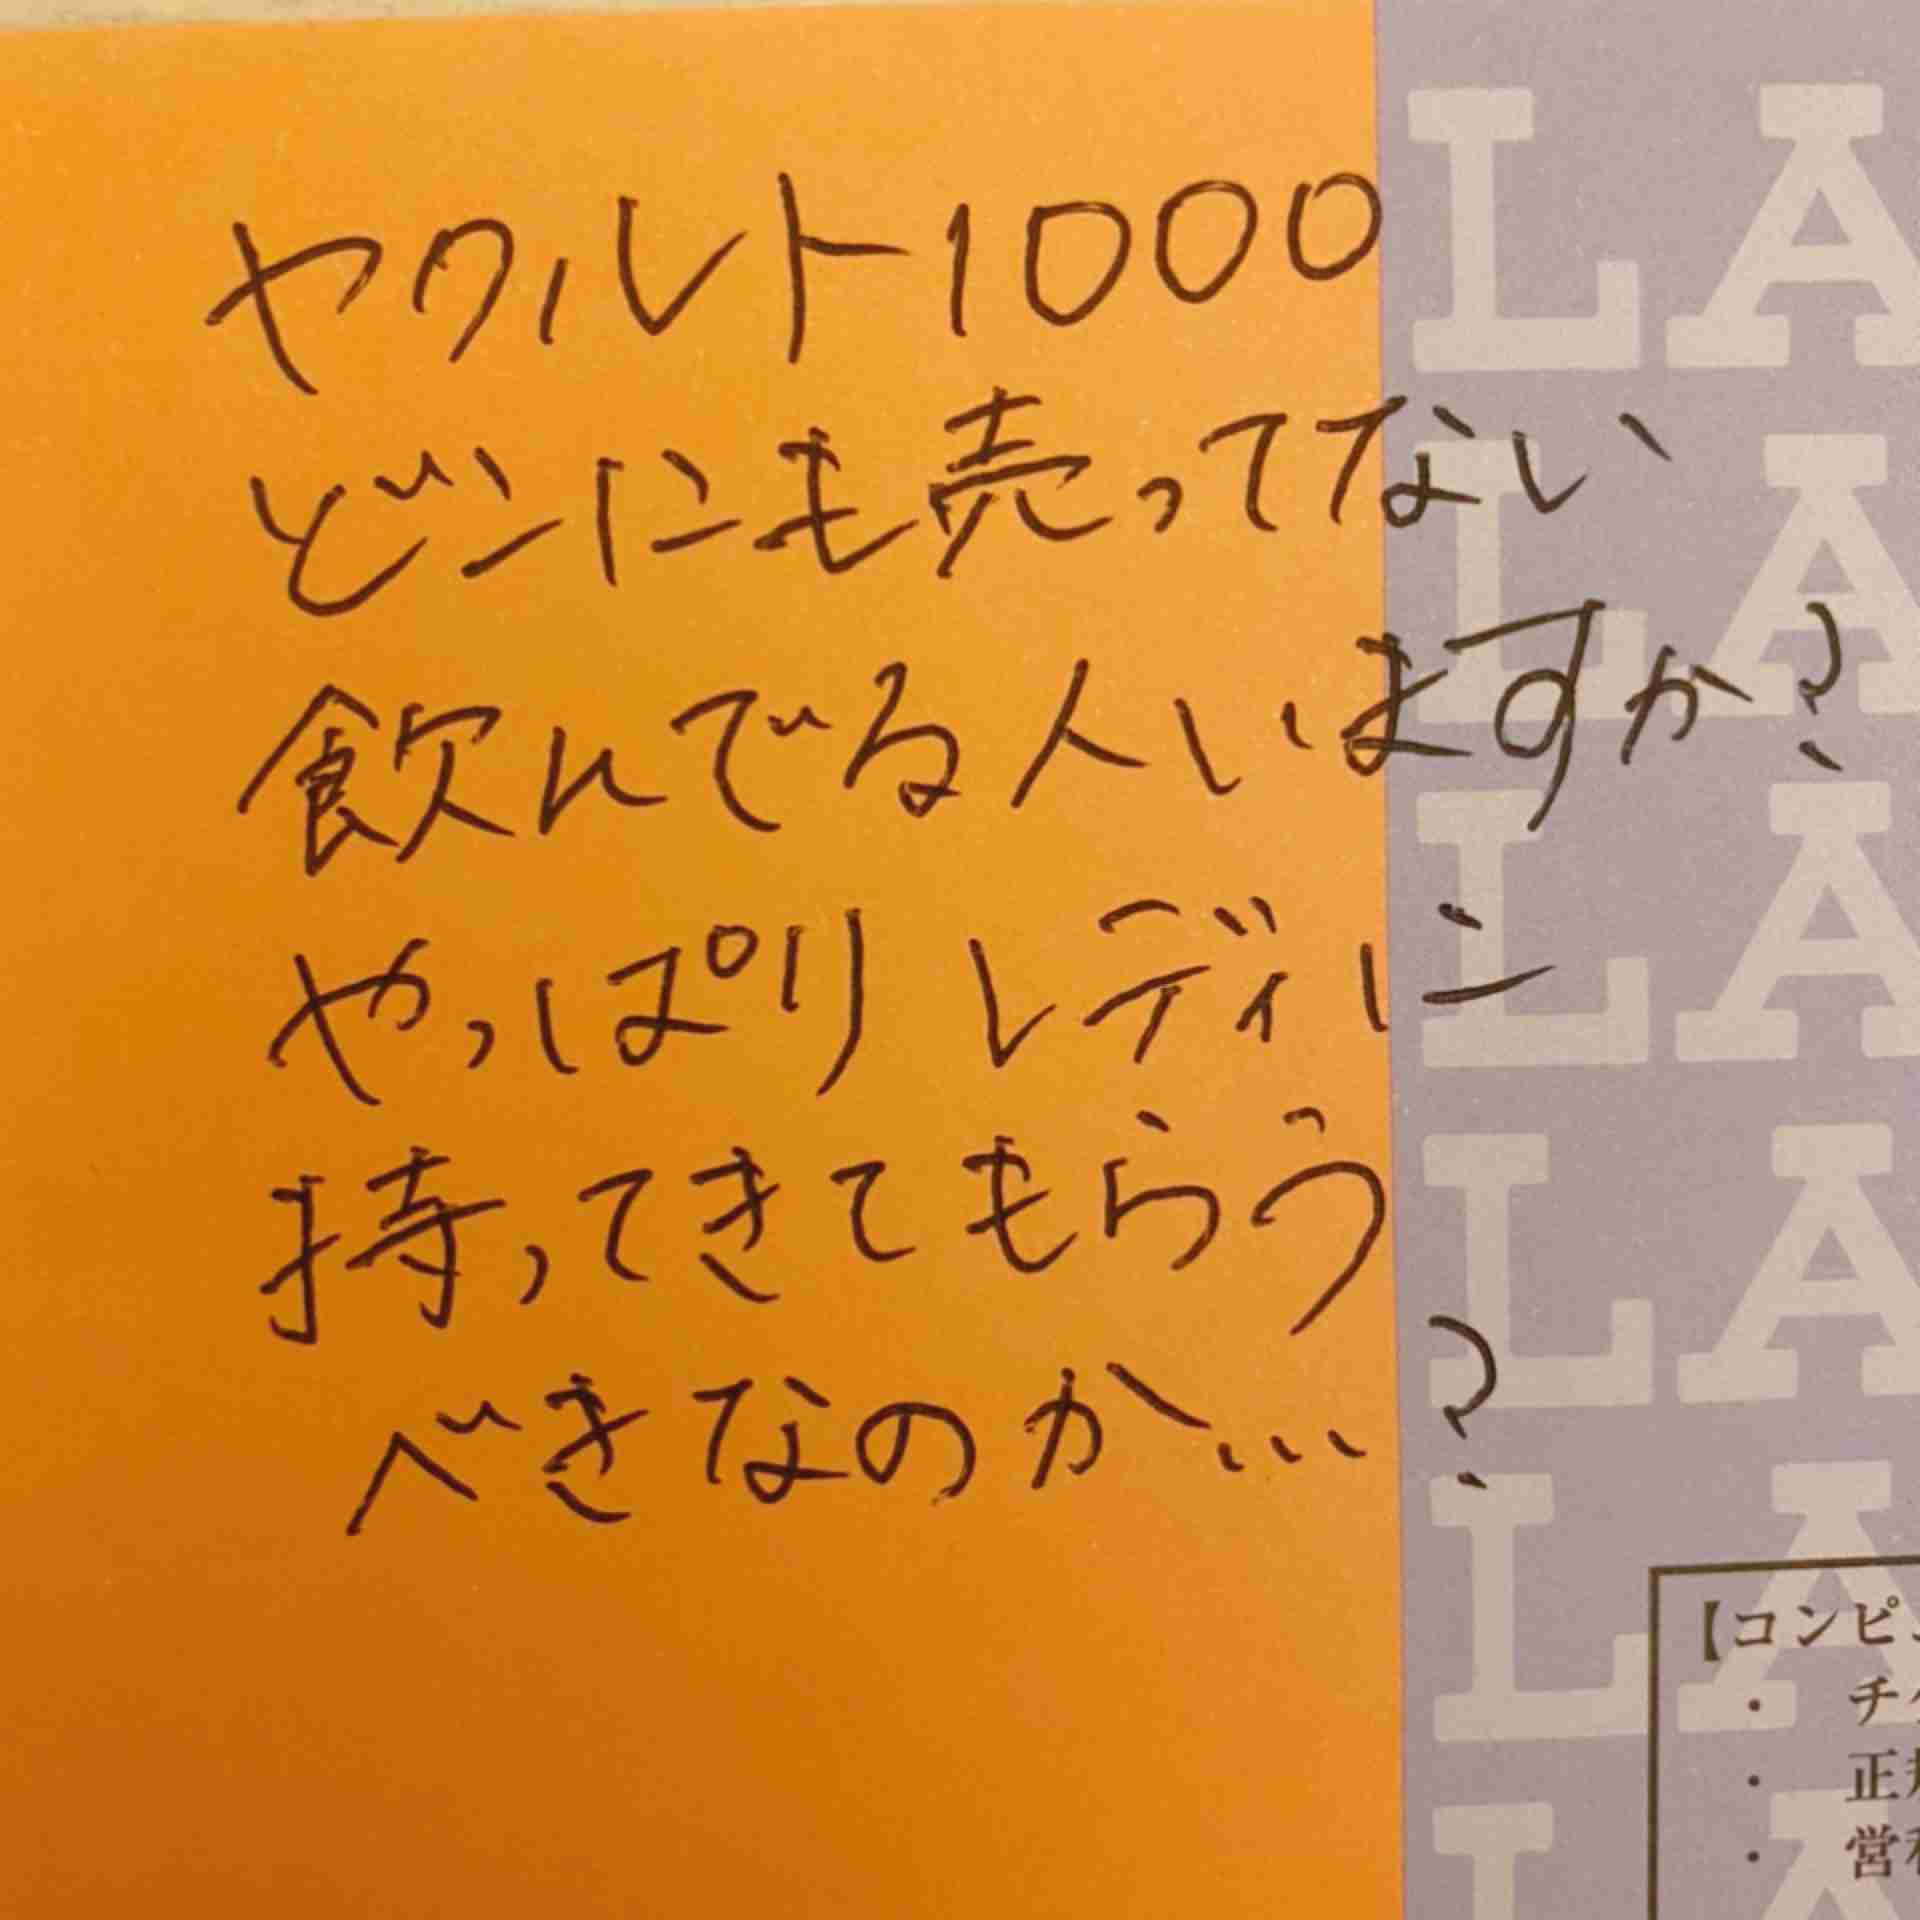 ヤクルト1000
どこにも売ってない
飲んでる人いますか?
やっぱりレディに
持ってきてもらう
べきなのか…?
LA
LA
LA
LA
LA
LA
【コンピ
・ チケ
・ 正規
・ 営利